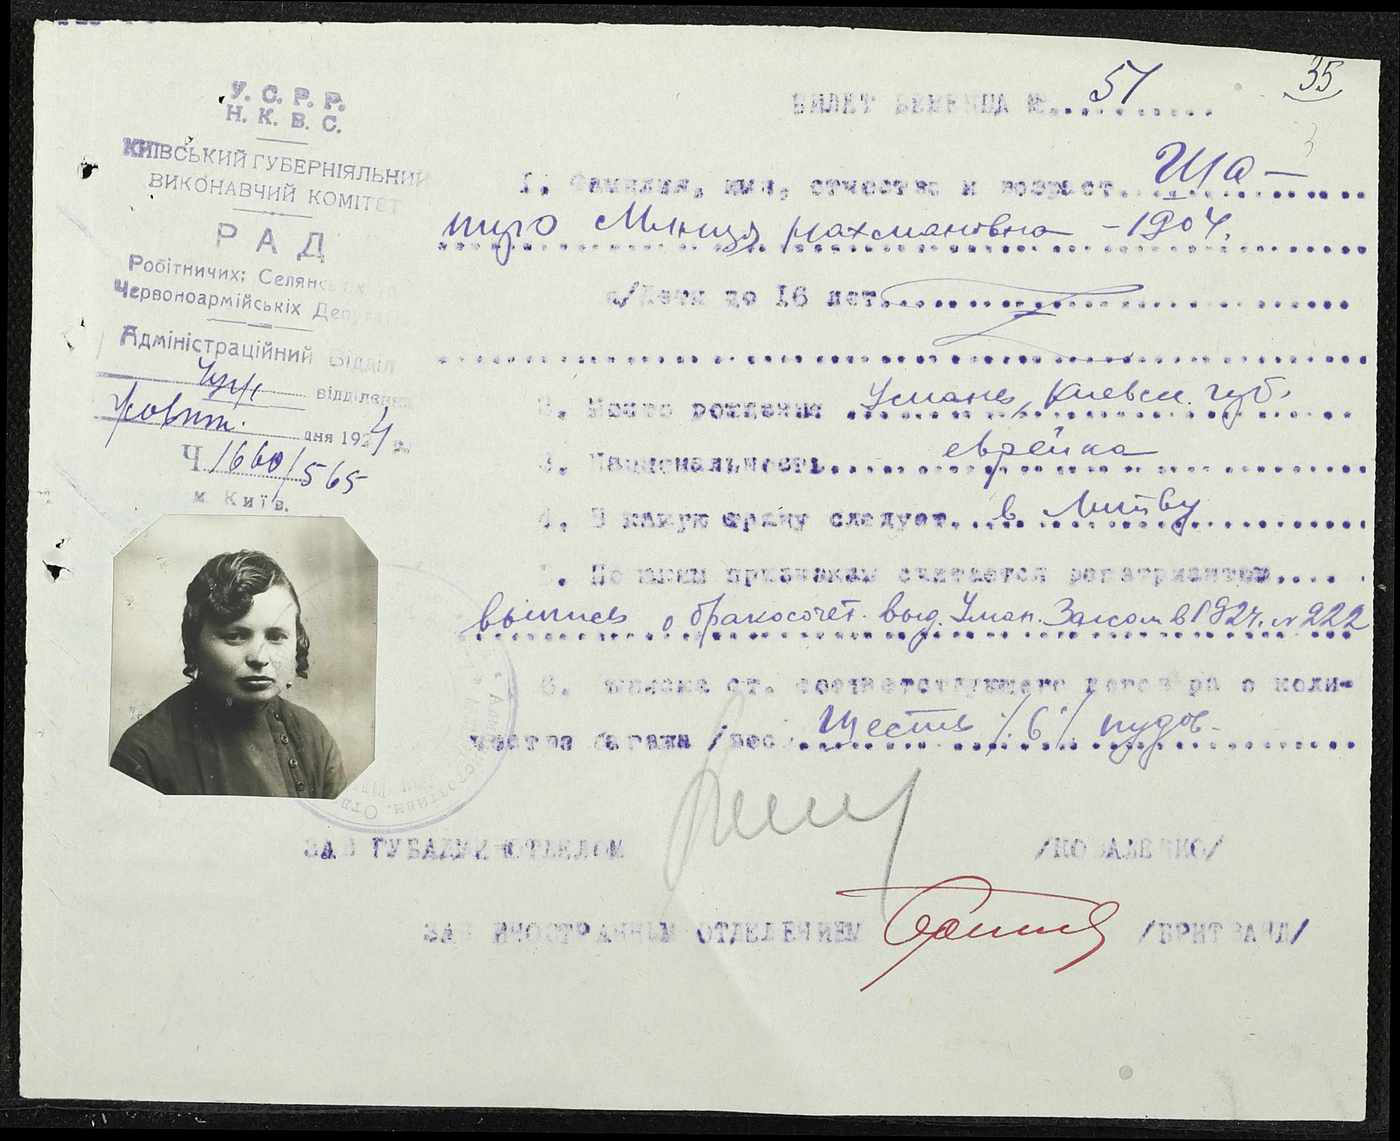 35
У. С. Р. Р.
Н. К. В. С.
КИЇВСЬКИЙ ГУБЕРНІЯЛЬНИЙ
ВИКОНАВЧИЙ КОМІТЕТ
РАД
Робітничих; Селянських та
Червоноармійських Депутатів
Адміністраційний Відділ
відділення
Жовтн. дня 1924 р.
Ч. 1660/565
м. Київ.
БИЛЕТ БЕЖЕНЦА №. 51
1. Фамилия, имя, отчество и возраст. Ша-
пиро Нахмановна - 1904.
а/Дети до 16 лет.
2. Место рождения Умань, Киевск. губ.
3. Национальность еврейка
4. В какую страну следует. в Литву
5. По каким признакам считается репатриантом
выпись о бракосочет. выд. Уман. Загсом в 1924. № 222
6. ст. соответствующего договора о коли-
честве багажа /вес/ Шесть /6/ пудов.
ЗАВ ГУБАДМ-ОТДЕЛОМ /КОВАЛЕНКО/
ЗАВ ИНОСТРАННЫМ ОТДЕЛЕНИЕМ /БРИТВАНД/